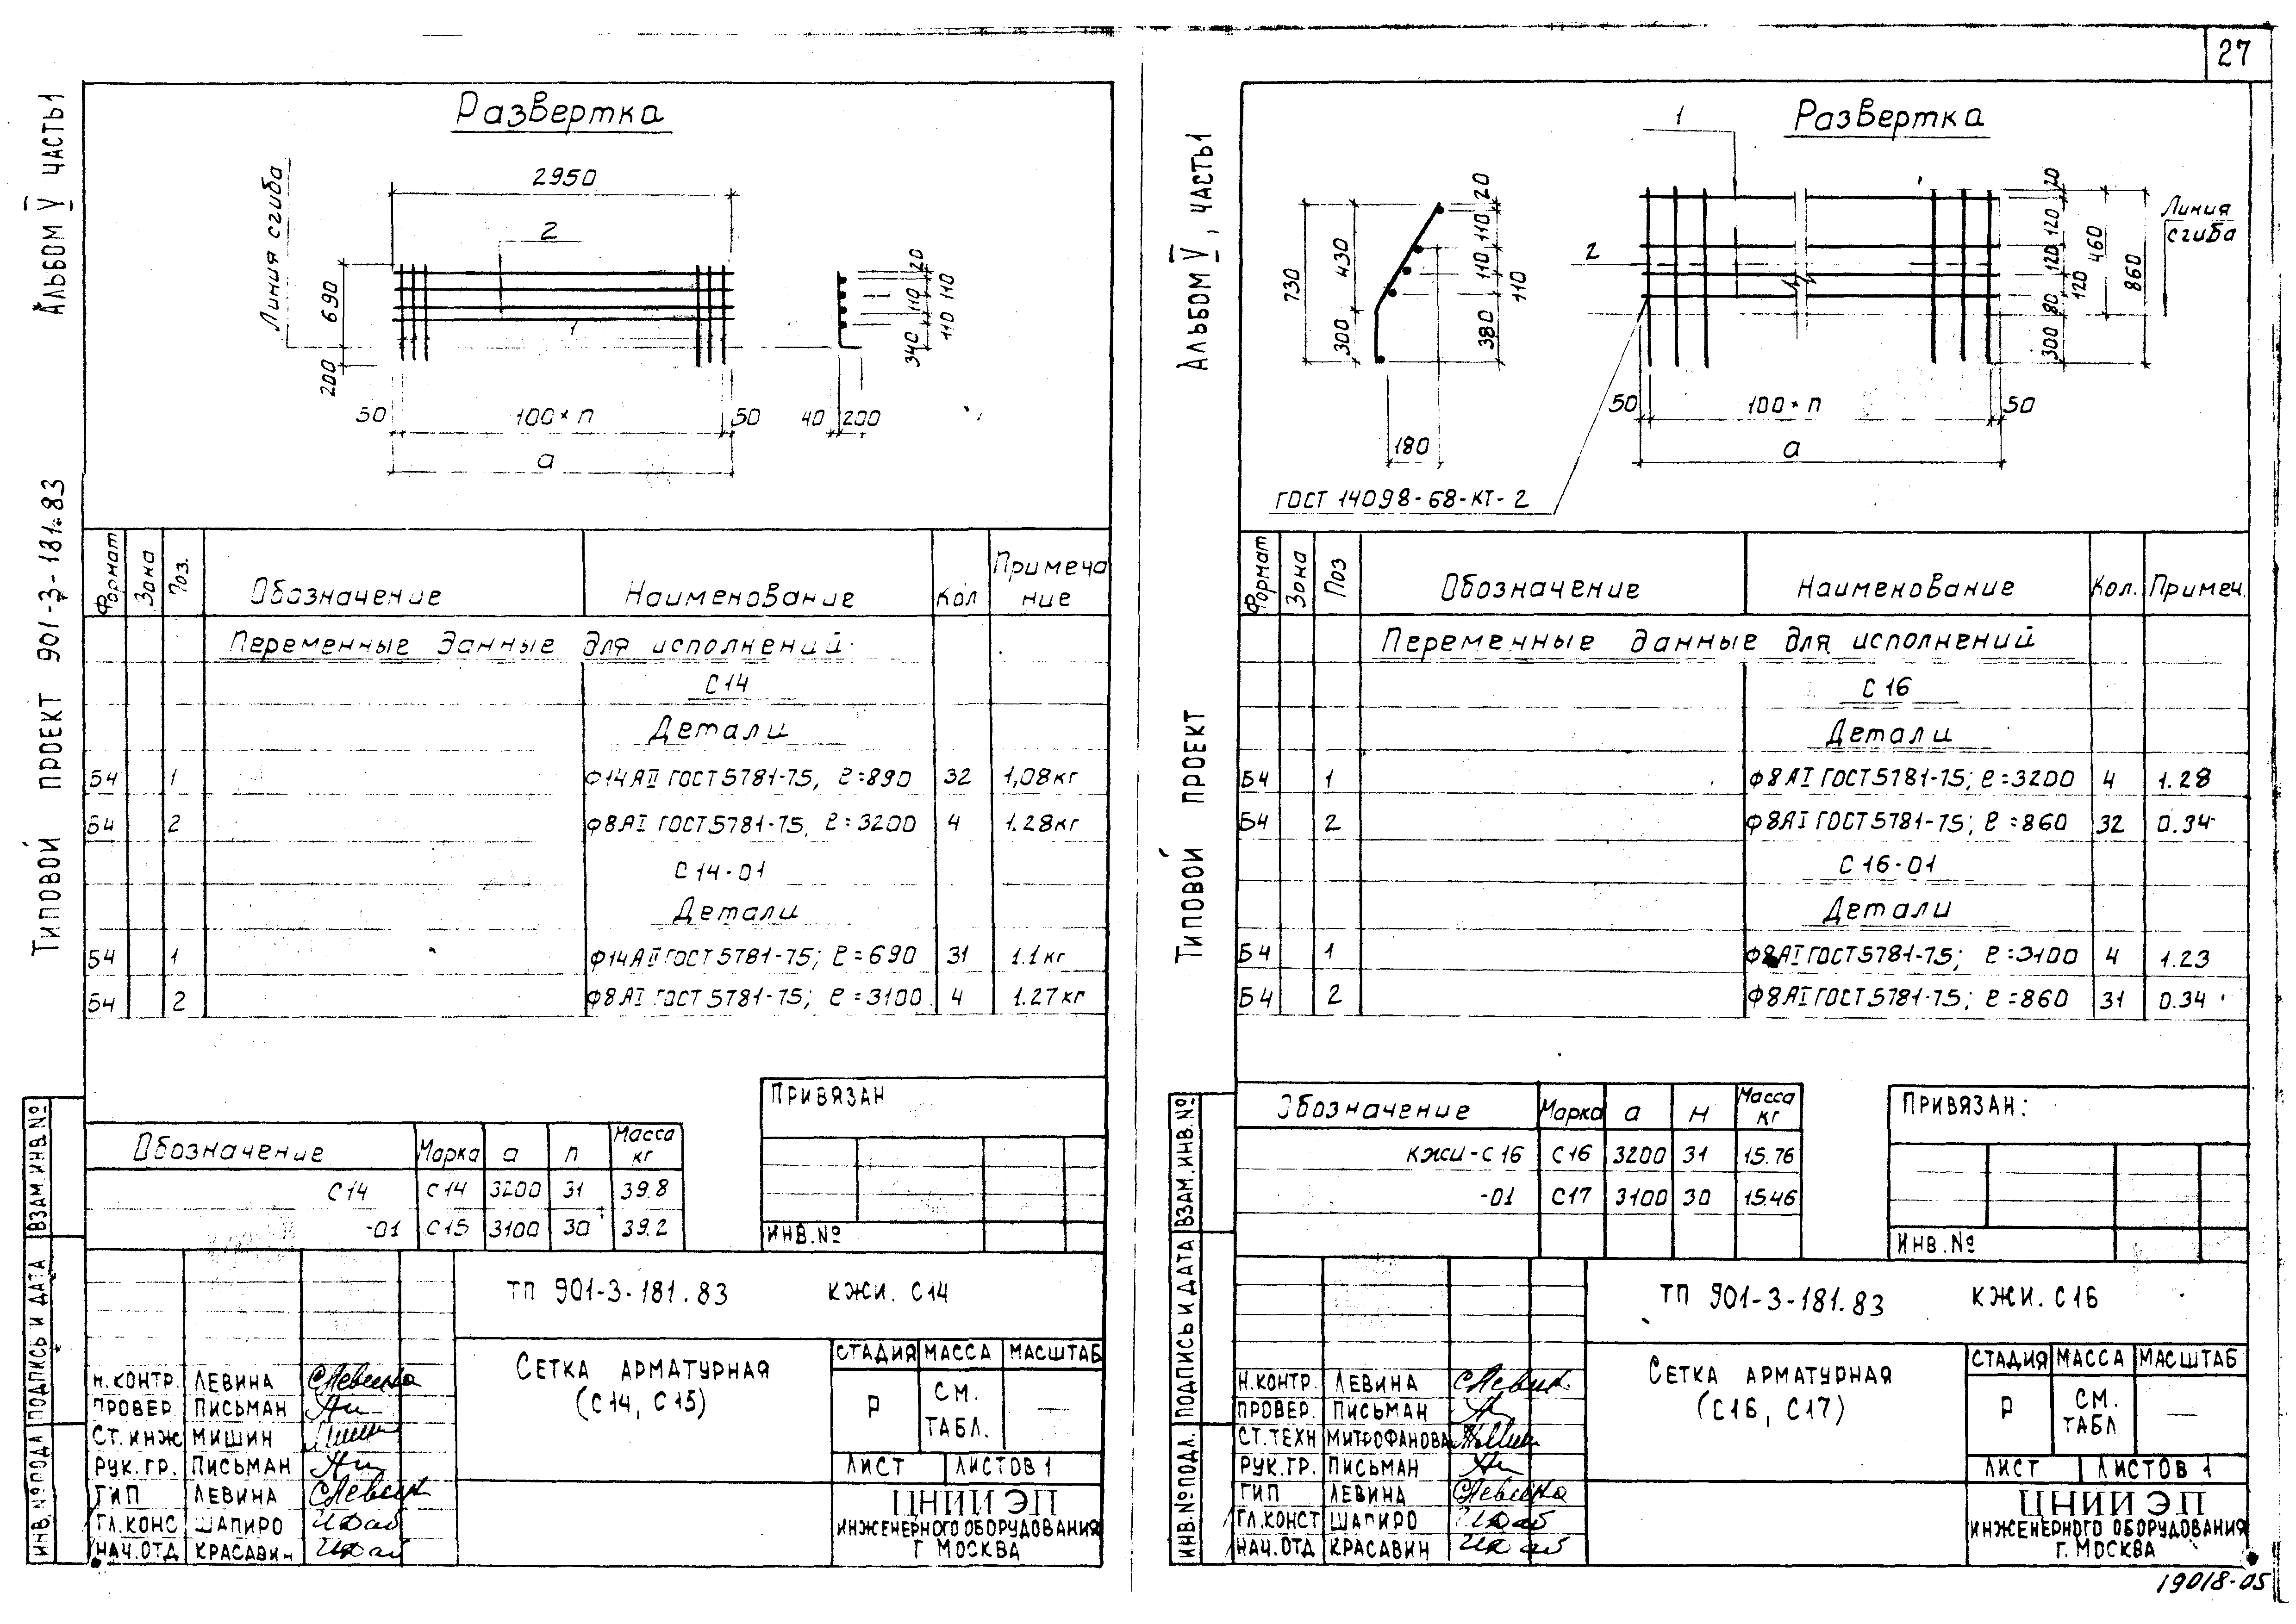 27
Альбом V часть 1
Типовой проект 901-3-181.83
Развертка
2950
Линия сгиба
2
1
690
200
50
100×п
50
а
20
110 110
110
340
40 200
Формат
Зона
Поз.
Обозначение
Наименование
Кол
Примеча
ние
Переменные данные для исполнений
С14
Детали
Б4 1 Ф14АII ГОСТ5781-75, ℓ=890 32 1,08кг
Б4 2 Ф8АI ГОСТ5781-75, ℓ=3200 4 1.28кг
С14-01
Детали
Б4 1 Ф14АII ГОСТ5781-75; ℓ=690 31 1.1кг
Б4 2 Ф8АI ГОСТ5781-75; ℓ=3100 4 1.27кг
Обозначение Марка а п Масса
кг
С14 С14 3200 31 39.8
-01 С15 3100 30 39.2
ПРИВЯЗАН
ИНВ.№
ВЗАМ.ИНВ.№
ПОДПИСЬ И ДАТА
ИНВ.№ПОДЛ
ТП 901-3-181.83 КЖИ. С14
СЕТКА АРМАТУРНАЯ
(С14, С15)
СТАДИЯ МАССА МАСШТАБ
Р СМ.
ТАБЛ. —
ЛИСТ ЛИСТОВ 1
Н.КОНТР. ЛЕВИНА
ПРОВЕР. ПИСЬМАН
СТ.ИНЖ МИШИН
РУК.ГР. ПИСЬМАН
ГИП ЛЕВИНА
ГЛ.КОНС ШАПИРО
НАЧ.ОТД КРАСАВИН
ЦНИИЭП
ИНЖЕНЕРНОГО ОБОРУДОВАНИЯ
Г МОСКВА
Альбом V, часть 1
Типовой проект
Развертка
1
2
730
430
300
20
110
110
110
380
180
20
120
120
120
80
300
460
860
Линия
сгиба
50
100×п
50
а
ГОСТ 14098-68-КТ-2
Формат
Зона
Поз
Обозначение
Наименование
Кол.
Примеч.
Переменные данные для исполнений
С16
Детали
Б4 1 Ф8АI ГОСТ5781-75; ℓ=3200 4 1.28
Б4 2 Ф8АI ГОСТ5781-75; ℓ=860 32 0.34
С16-01
Детали
Б4 1 Ф8АI ГОСТ5781-75; ℓ=3100 4 1.23
Б4 2 Ф8АI ГОСТ5781-75; ℓ=860 31 0.34
Обозначение Марка а Н Масса
кг
КЖИ-С16 С16 3200 31 15.76
-01 С17 3100 30 15.46
ПРИВЯЗАН:
ИНВ.№
ВЗАМ.ИНВ.№
ПОДПИСЬ И ДАТА
ИНВ.№ПОДЛ.
ТП 901-3-181.83 КЖИ. С16
СЕТКА АРМАТУРНАЯ
(С16, С17)
СТАДИЯ МАССА МАСШТАБ
Р СМ.
ТАБЛ —
ЛИСТ ЛИСТОВ 1
Н.КОНТР. ЛЕВИНА
ПРОВЕР. ПИСЬМАН
СТ.ТЕХН МИТРОФАНОВА
РУК.ГР. ПИСЬМАН
ГИП ЛЕВИНА
ГЛ.КОНСТ ШАПИРО
НАЧ.ОТД КРАСАВИН
ЦНИИЭП
ИНЖЕНЕРНОГО ОБОРУДОВАНИЯ
Г. МОСКВА
19018-05